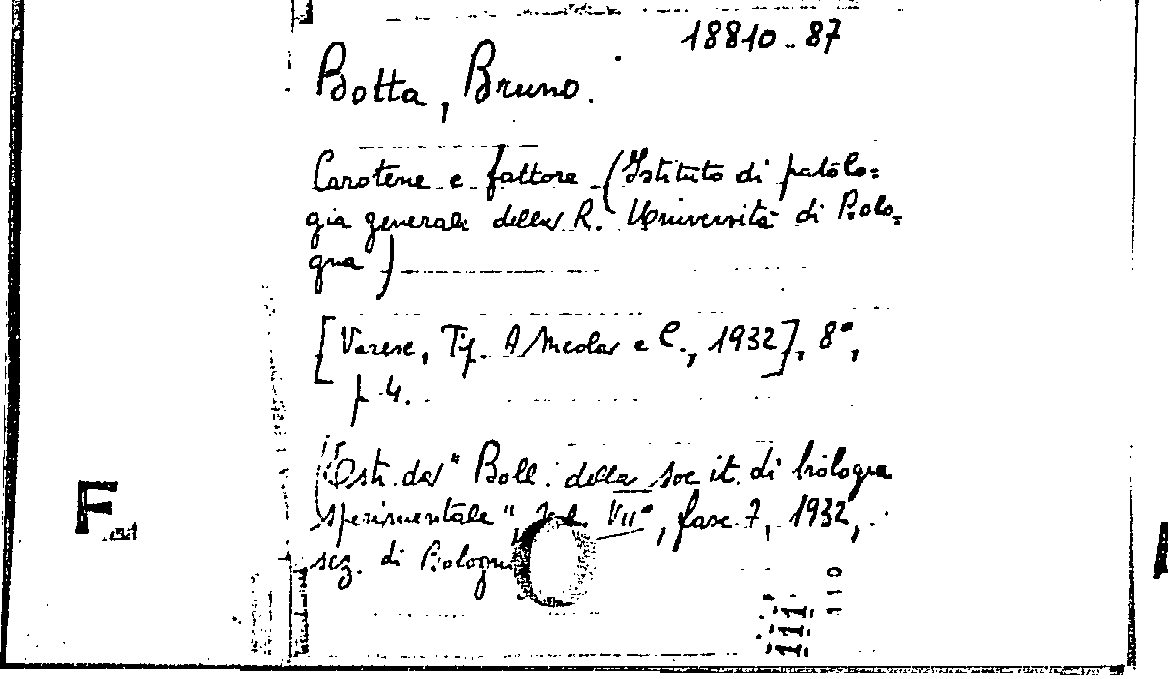 18810.87
Botta, Bruno.
Carotene e fattore (Istituto di patolo=
gia generale della R. Università di Bolo=
gna)
[Varese, Tip. A Nicola e C., 1932], 8°,
p. 4.
(Estr. dal "Boll. della soc it. di biologia
sperimentale", Vol. VII°, fasc 7, 1932,
sez. di Bologna
F